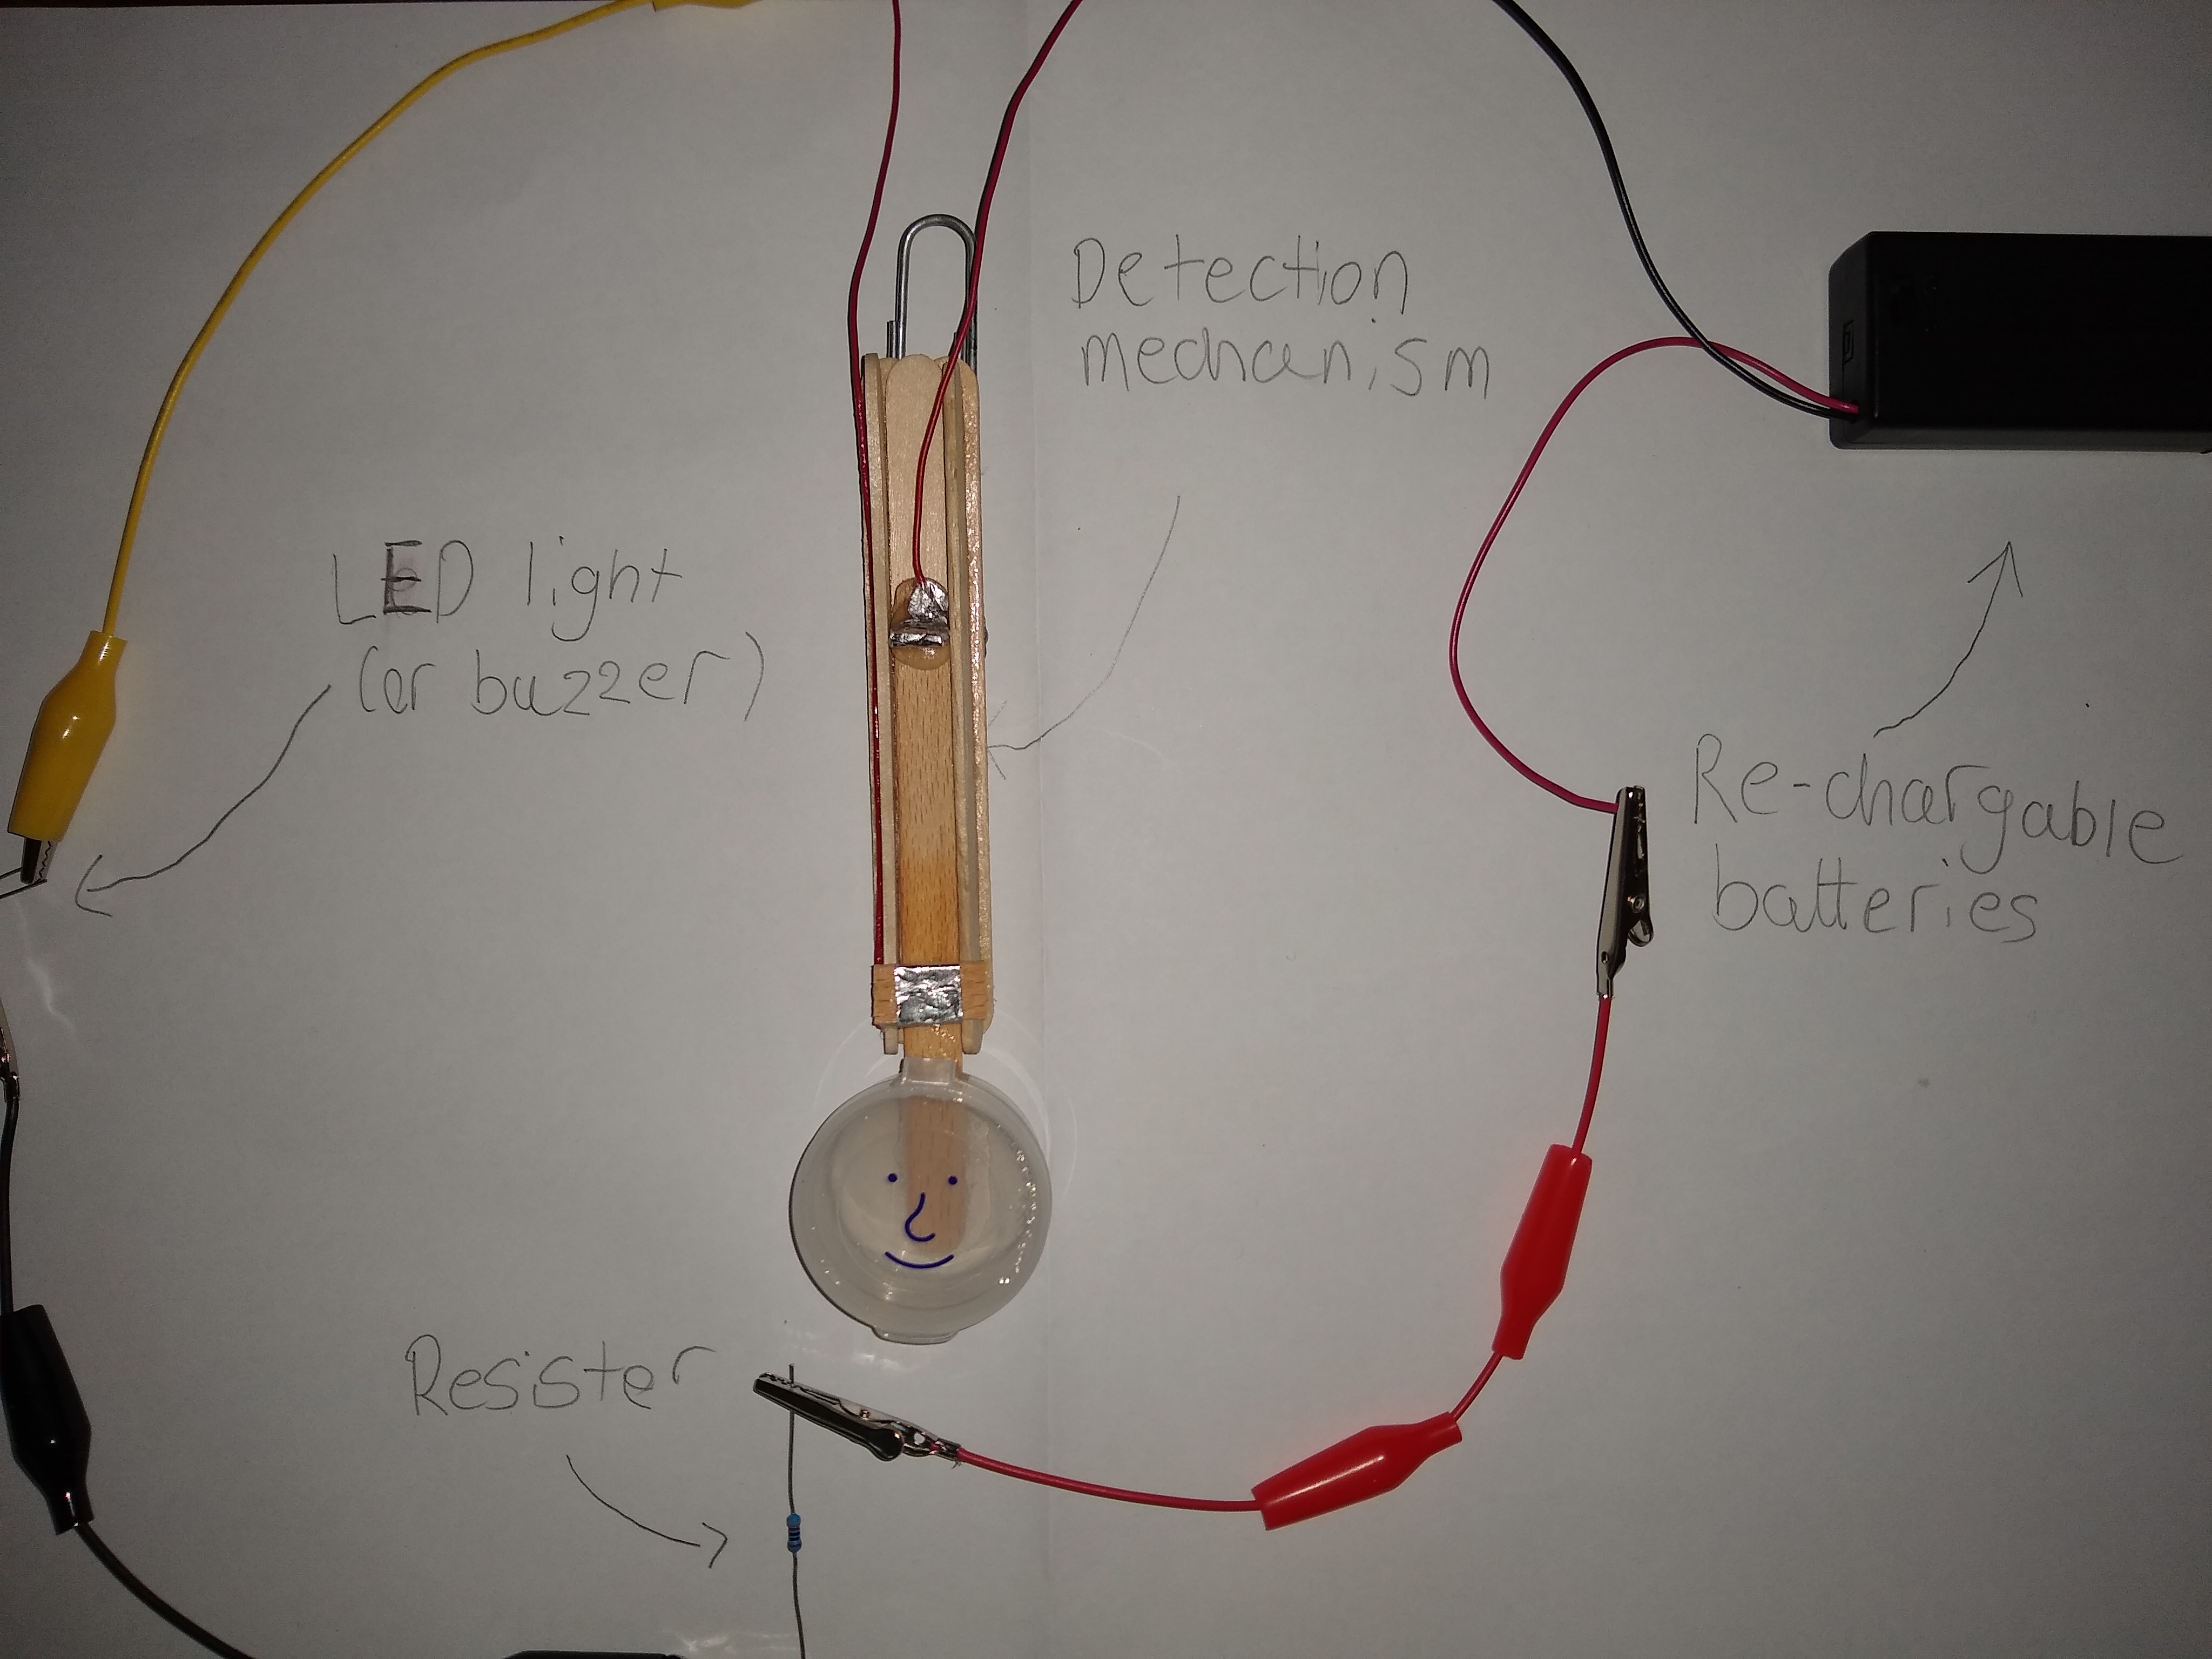 Detection
mechanism
LED light
(or buzzer)
Re-chargable
batteries
Resister